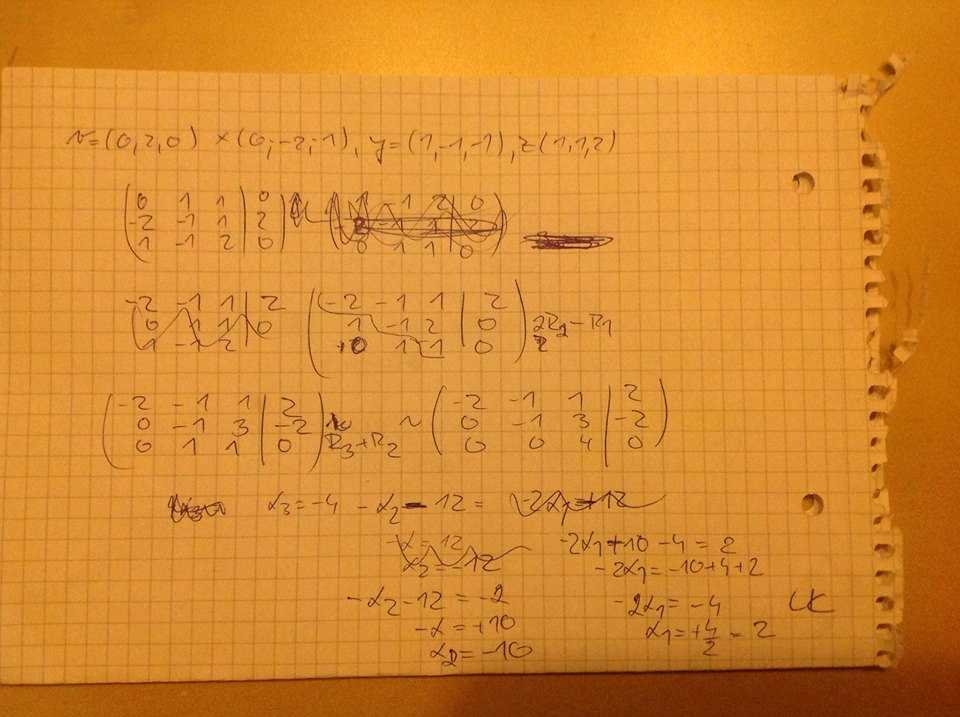 v=(0,2,0) x(0;-2;1), y=(1,-1,-1), z(1,1,2)
(0 1 1 | 0
-2 -1 1 | 2
1 -1 2 | 0)
-2 -1 1 | 2
0 1 1 | 0
1 -1 2 |
(-2 -1 1 | 2
1 -1 2 | 0
0 1 1 | 0) 2R2-R1
(-2 -1 1 | 2
0 -1 3 | -2
0 1 1 | 0) R3+R2
~ (-2 -1 1 | 2
0 -1 3 | -2
0 0 4 | 0)
α3=-4 -α2-12= -2α1+12
-α=12
α2=-12
-α2-12=-2
-α=+10
α2=-10
-2α1+10-4=2
-2α1=-10+4+2
-2α1=-4
α1=+4/2=2